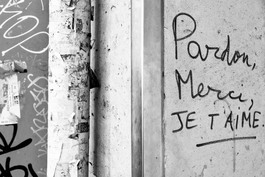 Pardon,
Merci,
JE T'AIME.